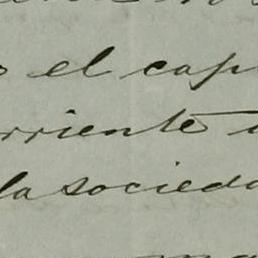 el cap
rriente
la socieda